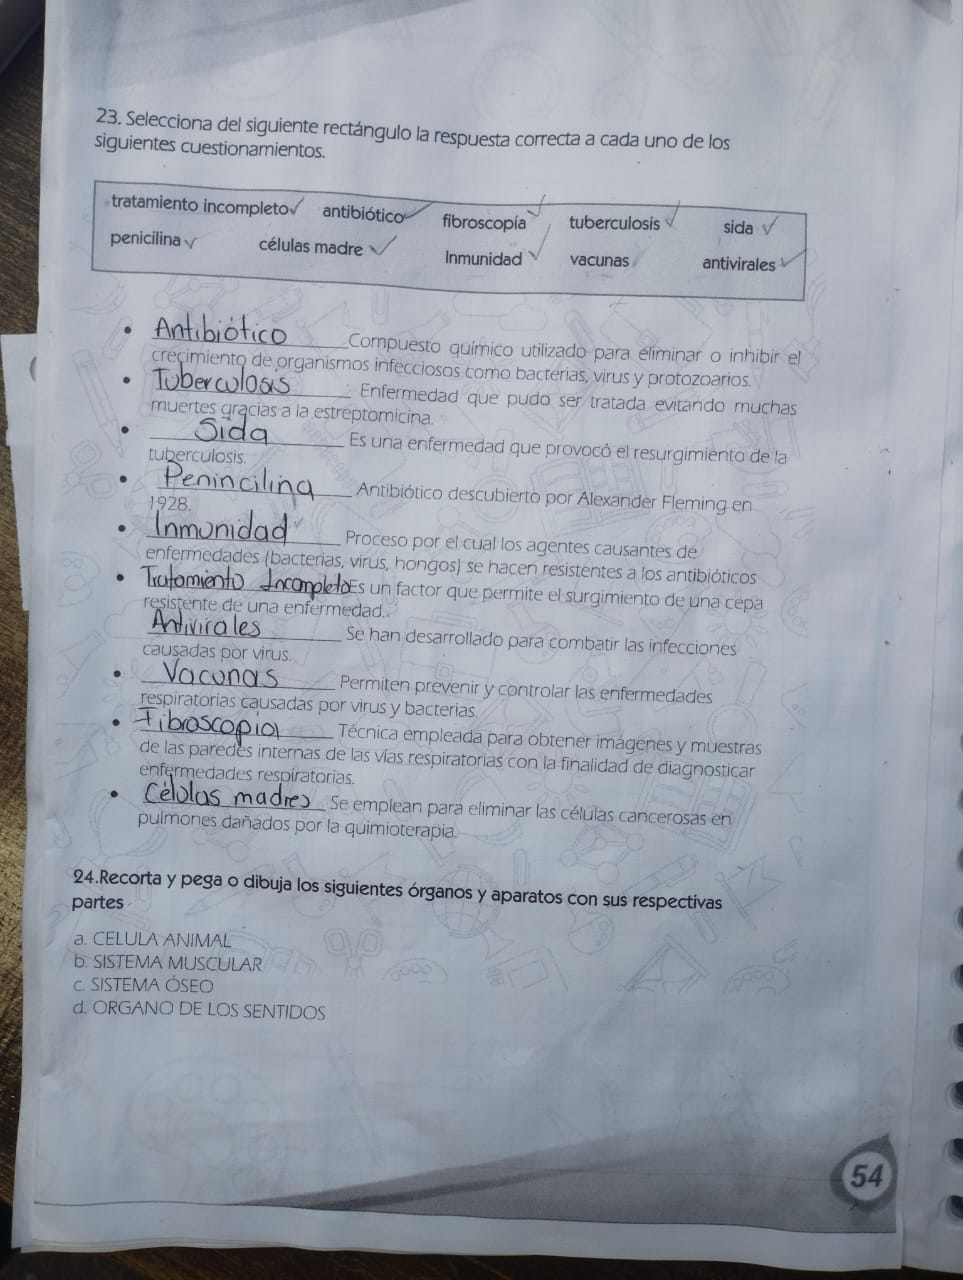 23. Selecciona del siguiente rectángulo la respuesta correcta a cada uno de los
siguientes cuestionamientos.
tratamiento incompleto✓ antibiótico✓ fibroscopía✓ tuberculosis✓ sida✓
penicilina✓ células madre✓ Inmunidad✓ vacunas antivirales✓
• Antibiótico Compuesto químico utilizado para eliminar o inhibir el
crecimiento de organismos infecciosos como bacterias, virus y protozoarios.
• Tuberculosis Enfermedad que pudo ser tratada evitando muchas
muertes gracias a la estreptomicina.
• Sida Es una enfermedad que provocó el resurgimiento de la
tuberculosis.
• Penincilina Antibiótico descubierto por Alexander Fleming en
1928.
• Inmunidad Proceso por el cual los agentes causantes de
enfermedades (bacterias, virus, hongos) se hacen resistentes a los antibióticos
• Tratamiento Incompleto Es un factor que permite el surgimiento de una cepa
resistente de una enfermedad.
Antivirales Se han desarrollado para combatir las infecciones
causadas por virus.
• Vacunas Permiten prevenir y controlar las enfermedades
respiratorias causadas por virus y bacterias.
• Fibroscopia Técnica empleada para obtener imágenes y muestras
de las paredes internas de las vías respiratorias con la finalidad de diagnosticar
enfermedades respiratorias.
• Células madres Se emplean para eliminar las células cancerosas en
pulmones dañados por la quimioterapia.
24.Recorta y pega o dibuja los siguientes órganos y aparatos con sus respectivas
partes
a. CELULA ANIMAL
b. SISTEMA MUSCULAR
c. SISTEMA ÓSEO
d. ORGANO DE LOS SENTIDOS
54